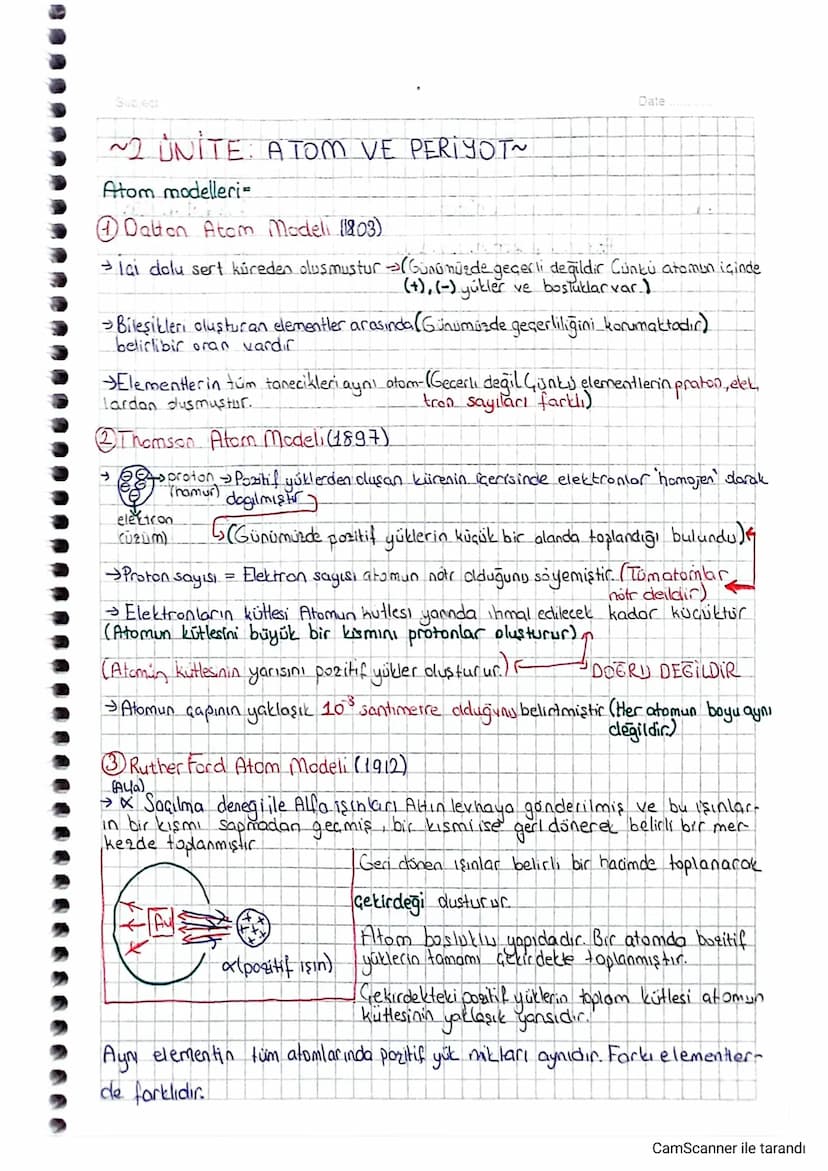 Subject
Date
~2 ÜNİTE: ATOM VE PERİYOT~
Atom modelleri=
① Dalton Atom Modeli (1803)
→ İçi dolu sert küreden oluşmuştur →(Günümüzde geçerli değildir Çünkü atomun içinde
(+), (-) yükler ve boşluklar var.)
→Bileşikleri oluşturan elementler arasında (Günümüzde geçerliliğini korumaktadır)
belirli bir oran vardır
→Elementlerin tüm tanecikleri aynı atom-(Geçerli değil Çünkü elementlerin proton, elek
lardan oluşmuştur. tron sayıları farklı)
② Thomson Atom Modeli (1897)
→ proton → Pozitif yüklerden oluşan kürenin içerisinde elektronlar 'homojen' olarak
(hamur) dağılmıştır
elektron
(üzüm)
(Günümüzde pozitif yüklerin küçük bir alanda toplandığı bulundu)
→Proton sayısı = Elektron sayısı atomun nötr olduğunu söyemiştir. (Tüm atomlar
nötr deildir)
→ Elektronların kütlesi Atomun kutlesi yanında ihmal edilecek kadar küçüktür
(Atomun kütlesini büyük bir kısmını protonlar oluşturur)
(Atomin kütlesinin yarısını pozitif yükler oluşturur.) DOĞRU DEĞİLDİR
→Atomun çapının yaklaşık 10⁻⁸ santimetre olduğunu belirtmiştir (Her atomun boyu aynı
değildir.)
③ Ruther Ford Atom Modeli (1912)
(Alfa)
→ α Saçılma deneği ile Alfa ışınları Altın levhaya gönderilmiş ve bu ışınlar-
ın bir kısmı sapmadan geçmiş, bir kısmı ise geri dönerek belirli bir mer-
kezde toplanmıştır
Geri dönen ışınlar belirli bir hacimde toplanarak
çekirdeği oluşturur.
Au
α(pozitif ışın)
Atom boşluklu yapıdadır. Bir atomda pozitif
yüklerin tamamı çekirdekte toplanmıştır.
Çekirdekteki pozitif yüklerin toplam kütlesi atomun
kütlesinin yaklaşık yarısıdır.
Aynı elementin tüm atomlarında pozitif yük miktarı aynıdır. Farkı elementler-
de farklıdır.
CamScanner ile tarandı